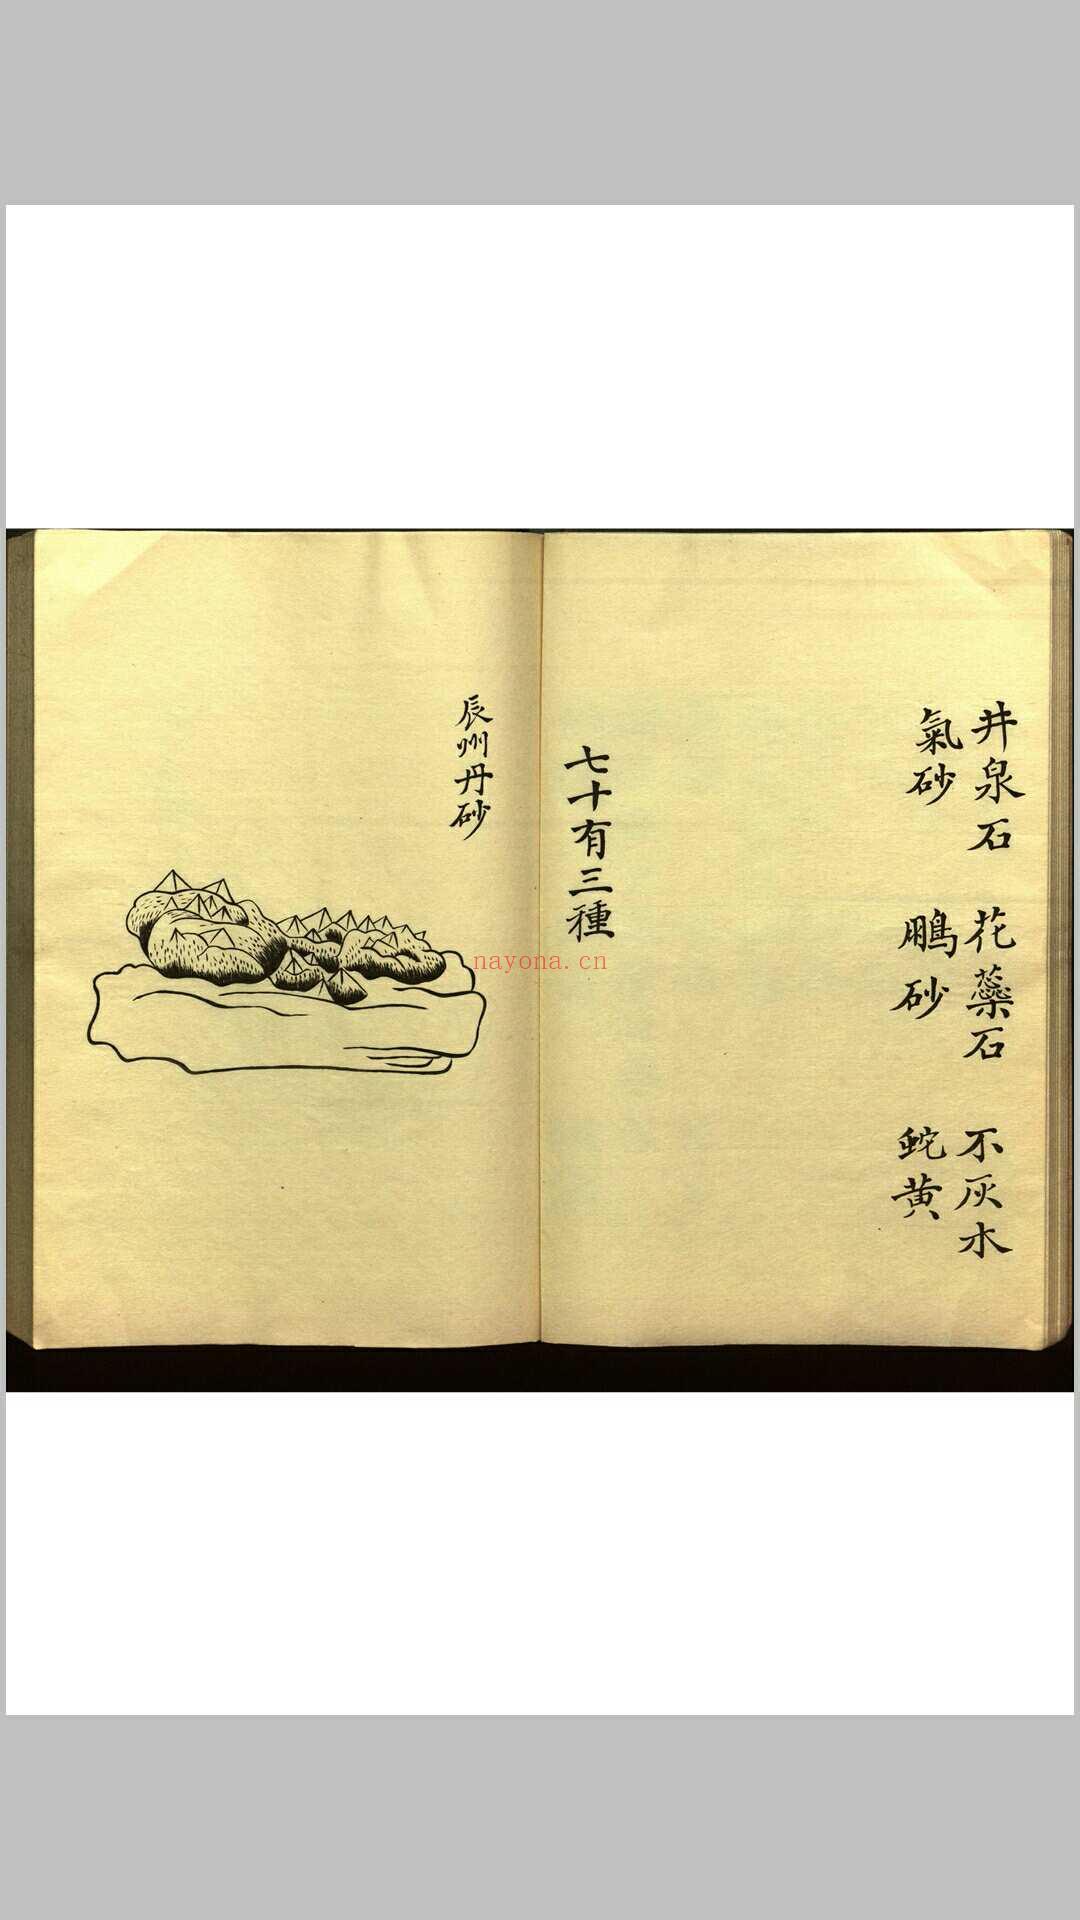 井泉石　花蘂石　不灰木
氣砂　鵬砂　蛇黄
七十有三種
辰州丹砂
nayona.cn